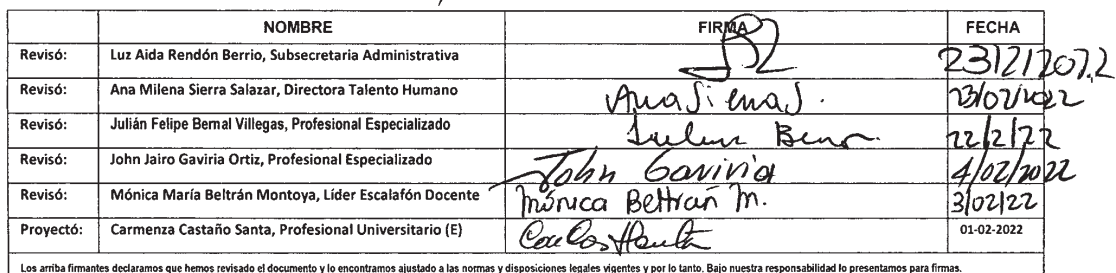 NOMBRE FIRMA FECHA
Revisó: Luz Aida Rendón Berrio, Subsecretaria Administrativa 23/2/2022
Revisó: Ana Milena Sierra Salazar, Directora Talento Humano 23/02/2022
Revisó: Julián Felipe Bernal Villegas, Profesional Especializado 22/2/22
Revisó: John Jairo Gaviria Ortiz, Profesional Especializado John Gaviria 4/02/2022
Revisó: Mónica María Beltrán Montoya, Líder Escalafón Docente Mónica Beltrán M. 3/02/22
Proyectó: Carmenza Castaño Santa, Profesional Universitario (E) 01-02-2022
Los arriba firmantes declaramos que hemos revisado el documento y lo encontramos ajustado a las normas y disposiciones legales vigentes y por lo tanto. Bajo nuestra responsabilidad lo presentamos para firmas.